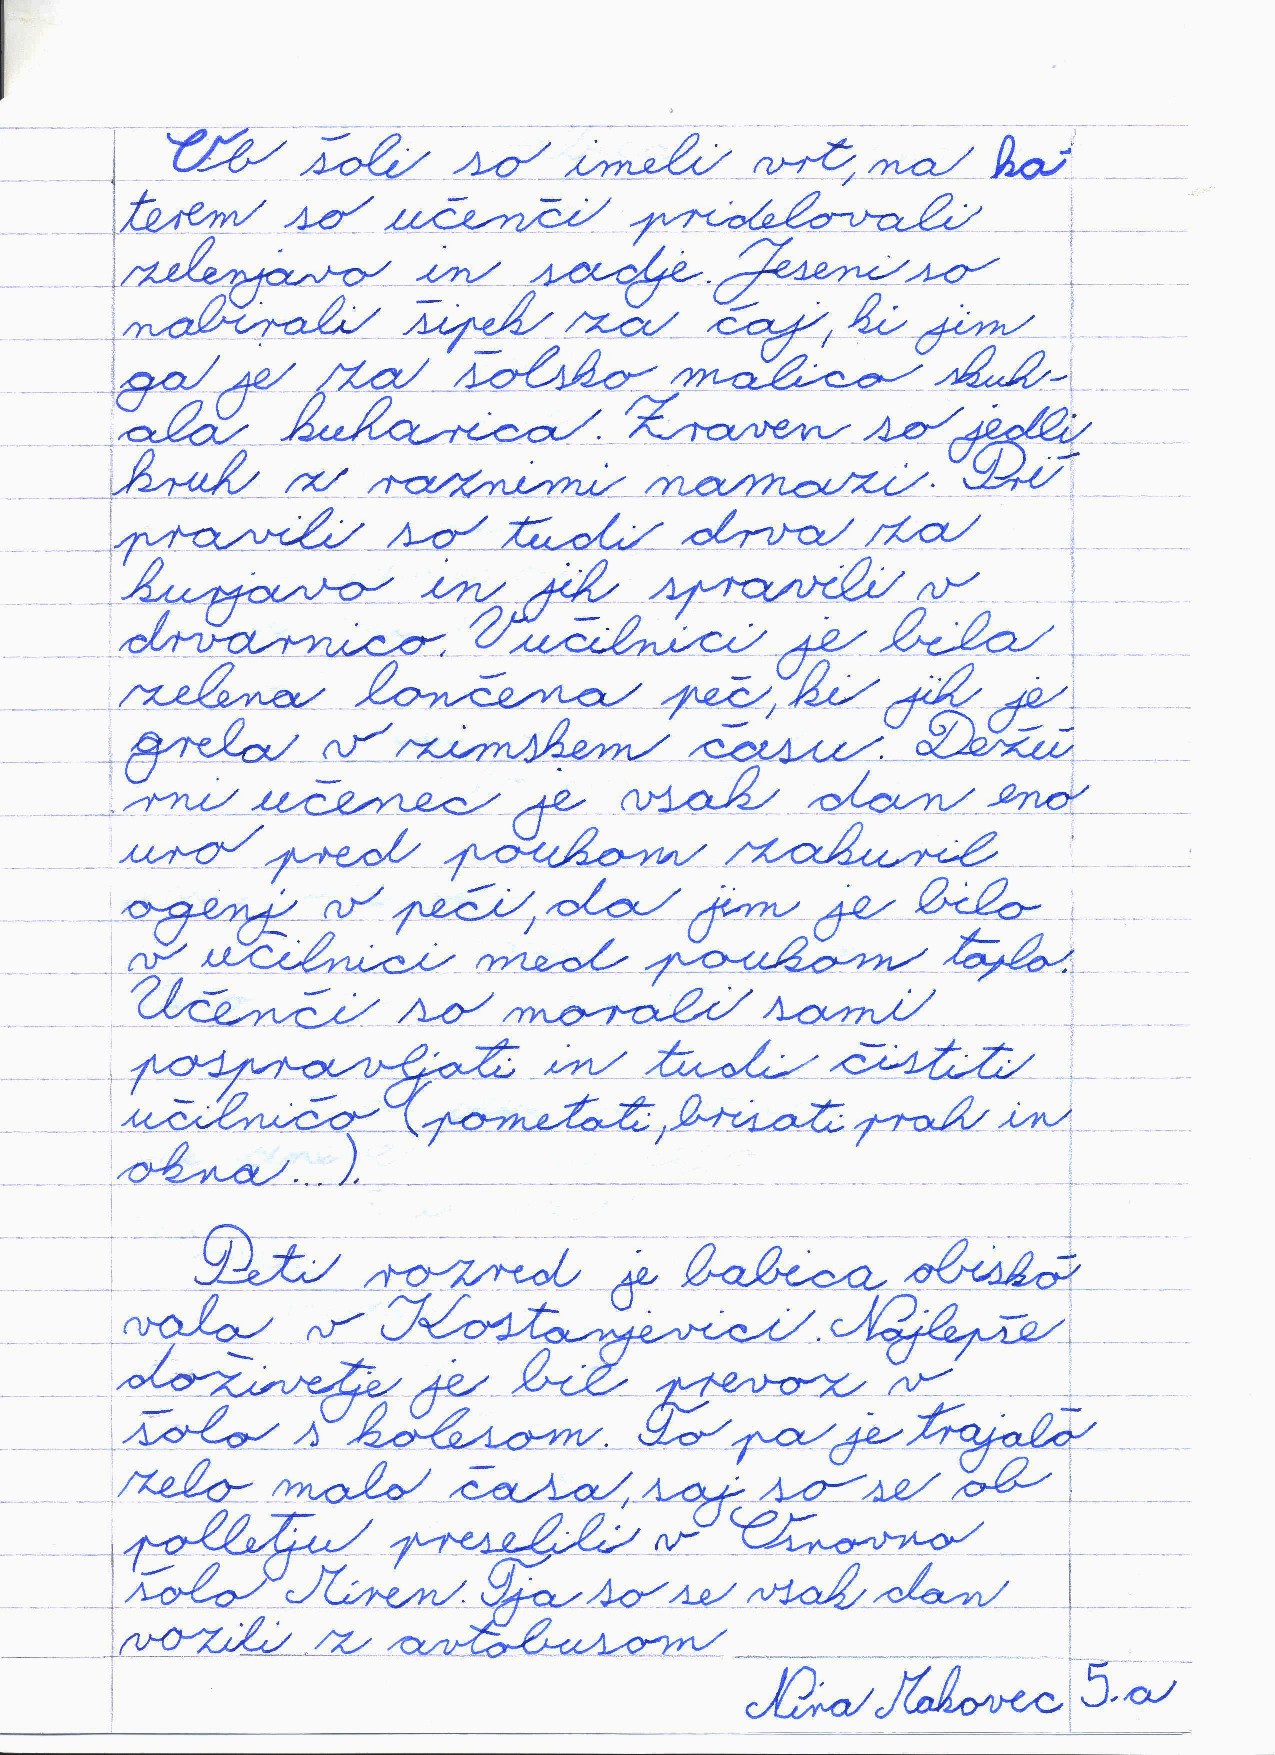 Ob šoli so imeli vrt, na ka-
terem so učenči pridelovali
zelenjavo in sadje. Jeseni so
nabirali šipek za čaj, ki jim
ga je za šolsko malico skuh-
ala kuharica. Zraven so jedli
kruh z raznimi namazi. Pri-
pravili so tudi drva za
kurjavo in jih spravili v
drvarnico. V učilnici je bila
zelena lončena peč, ki jih je
grela v zimskem času. Dežu-
rni učenec je vsak dan eno
uro pred poukom zakuril
ogenj v peči, da jim je bilo
v učilnici med poukom toplo.
Učenči so morali sami
pospravljati in tudi čistiti
učilničo (pometati, brisati prah in
okna...).
Peti razred je babica obisko-
vala v Kostanjevici. Najlepše
doživetje je bil prevoz v
šolo s kolesom. To pa je trajalo
zelo malo časa, saj so se ob
polletju preselili v Osnovno
šolo Miren. Tja so se vsak dan
vozili z avtobusom
Nina Makovec 5.a